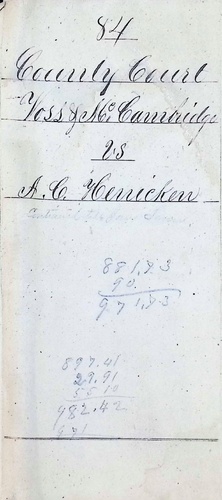 84
County Court
Voss & McCambridge
vs
A. C. Henicken
881.73
90.
971.73
897.41
29.91
55.10
982.42
971